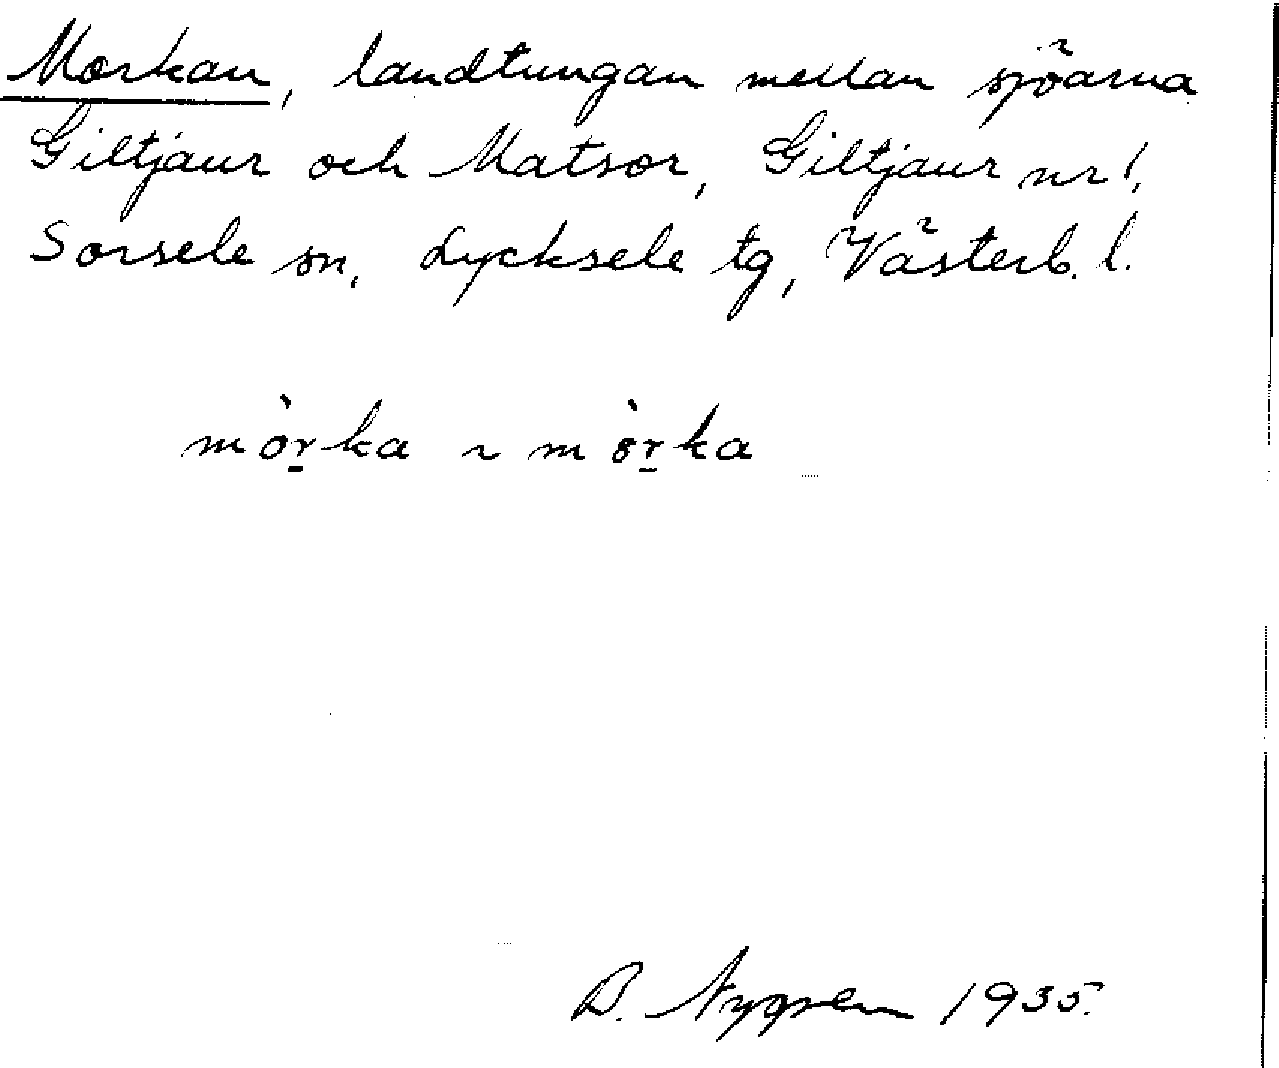 Morkan, landtungan mellan sjöarna
Giltjaur och Matsor, Giltjaur nr 1,
Sorsele sn, Lycksele tg, Västerb. l.
mòr̠ka ~ mòr̠ka
B. Nygren 1935.